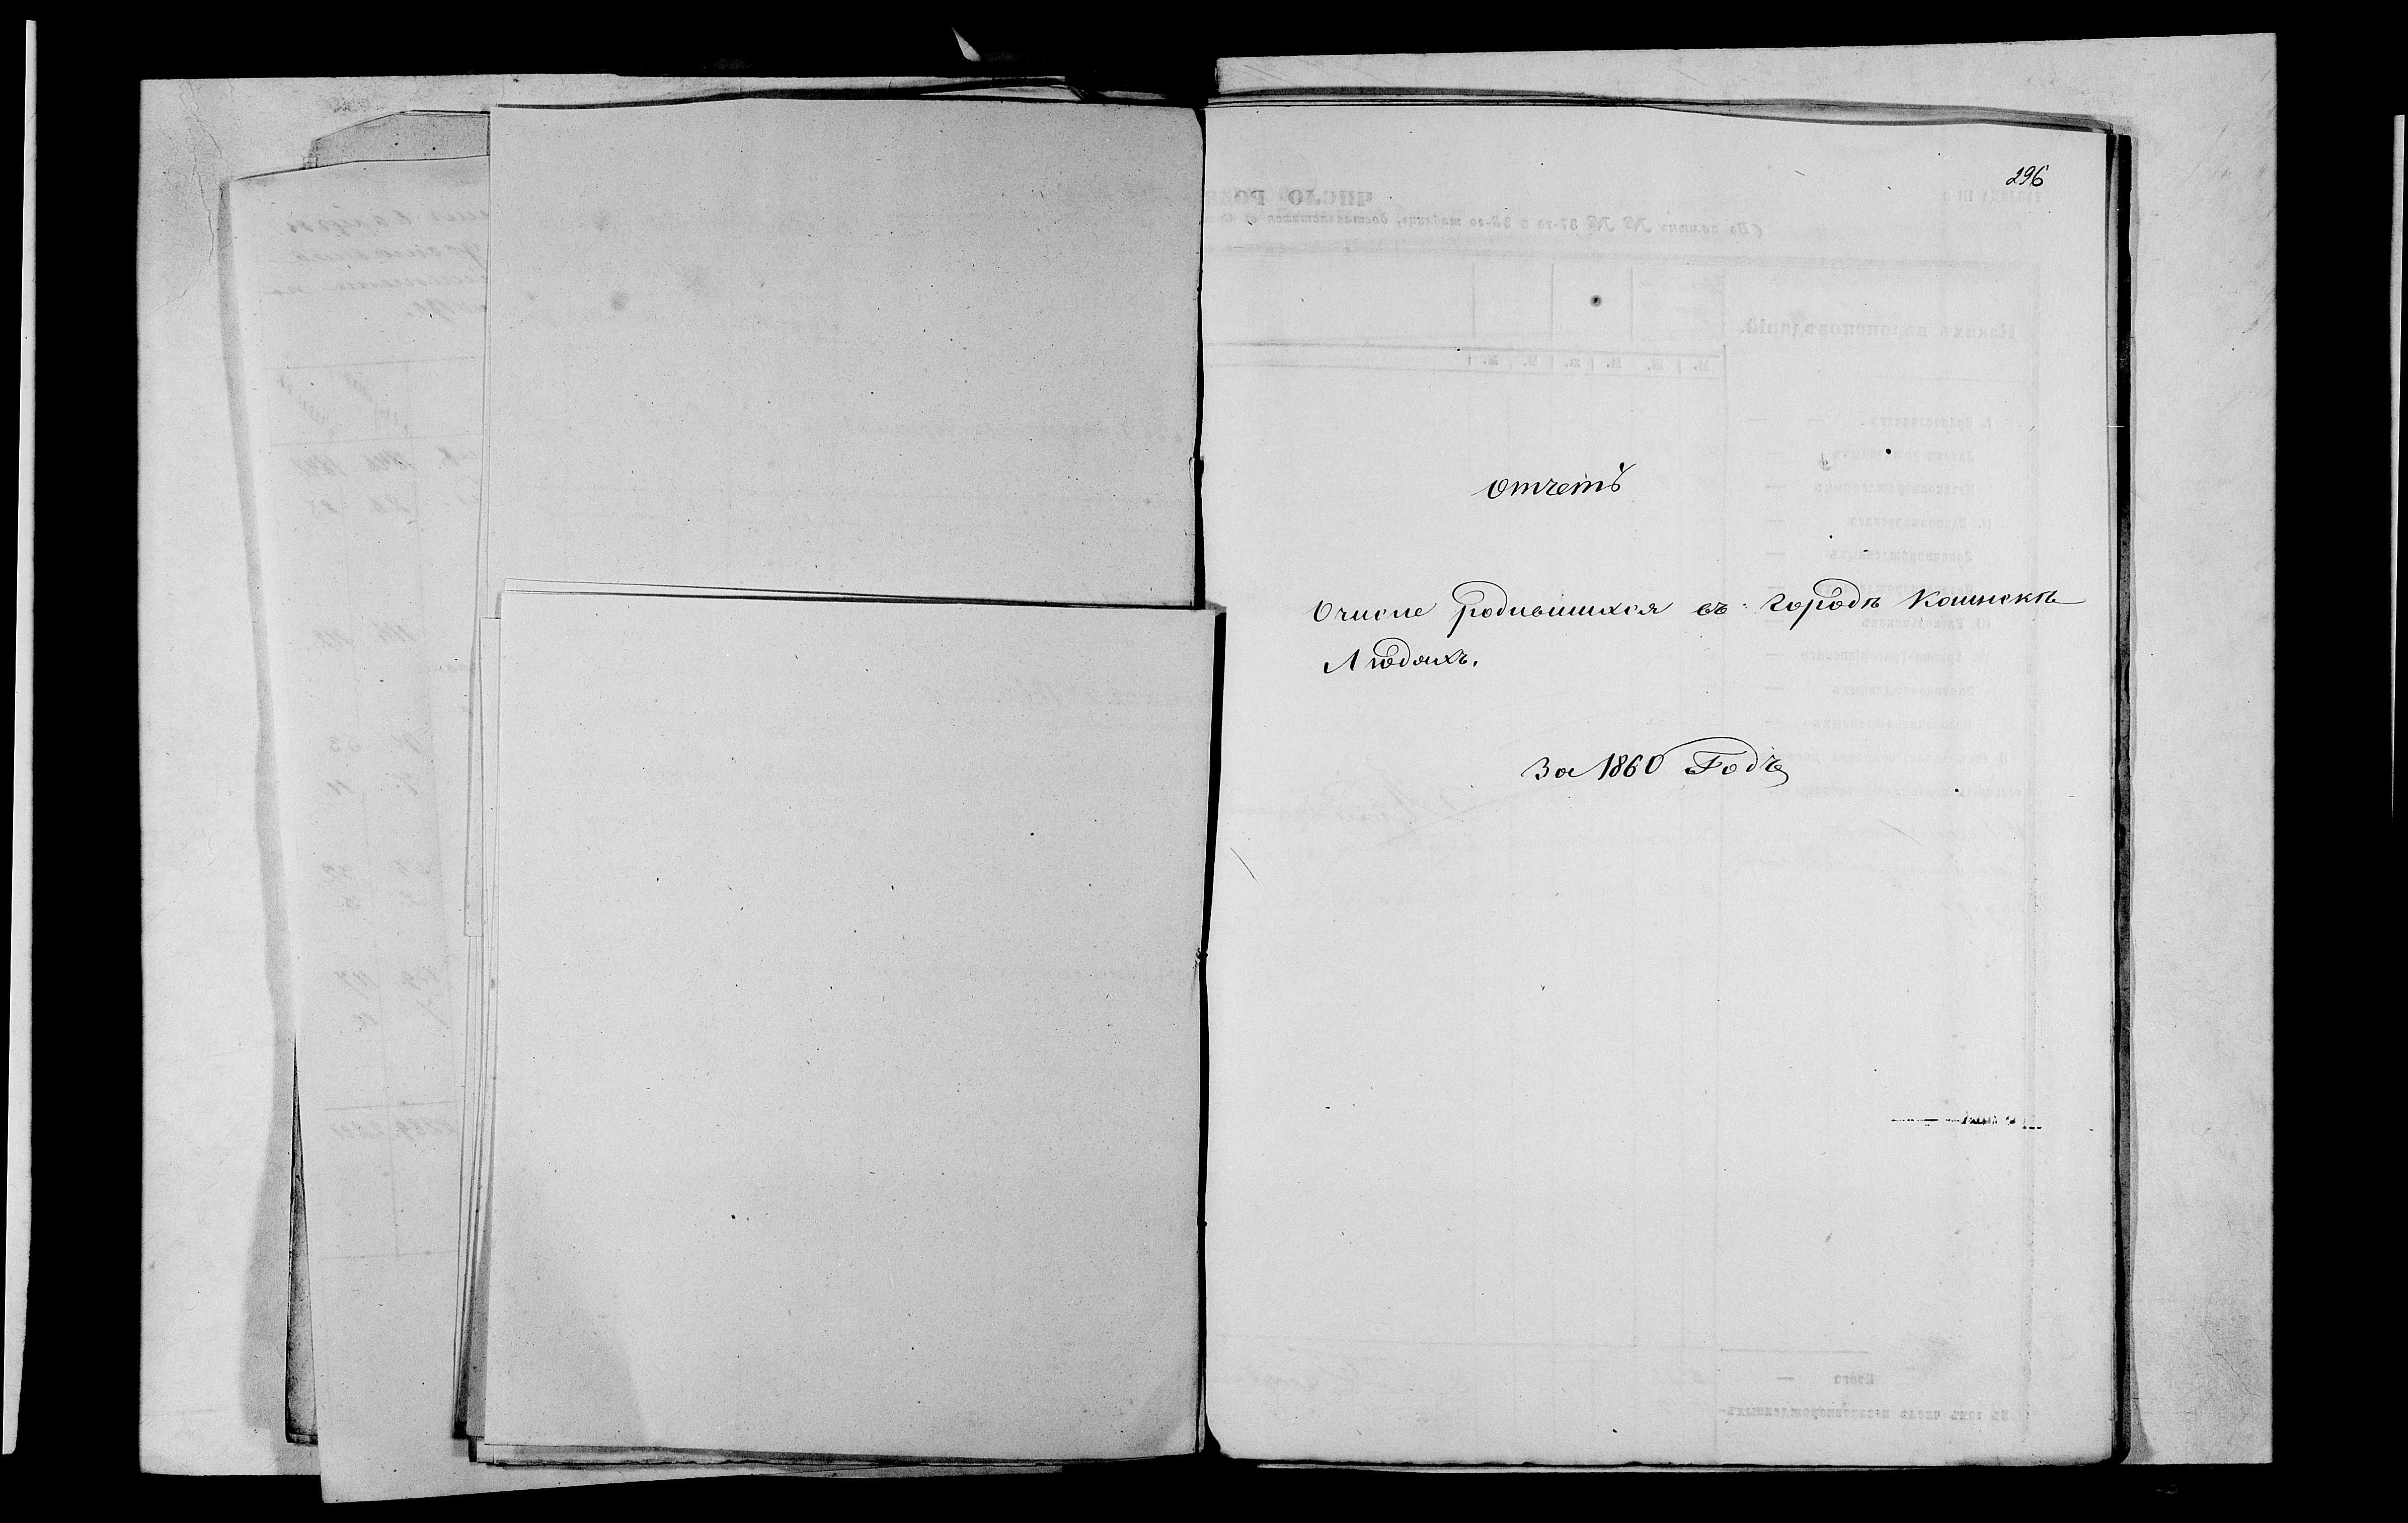 296
Отчетъ
О числе родившихся въ городѣ Каинскѣ
Людяхъ.
За 1860 Годъ